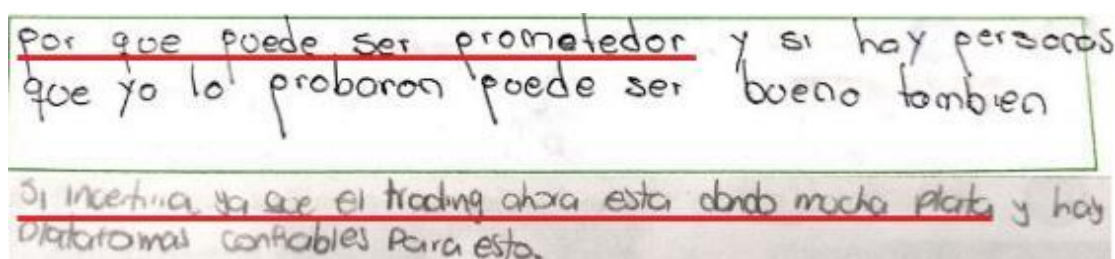 Por que puede ser prometedor y si hay personas
que ya lo probaron puede ser bueno tambien
Si incertiria ya que el trading ahora esta dando mucha plata y hay
plataformas confiables para esto.